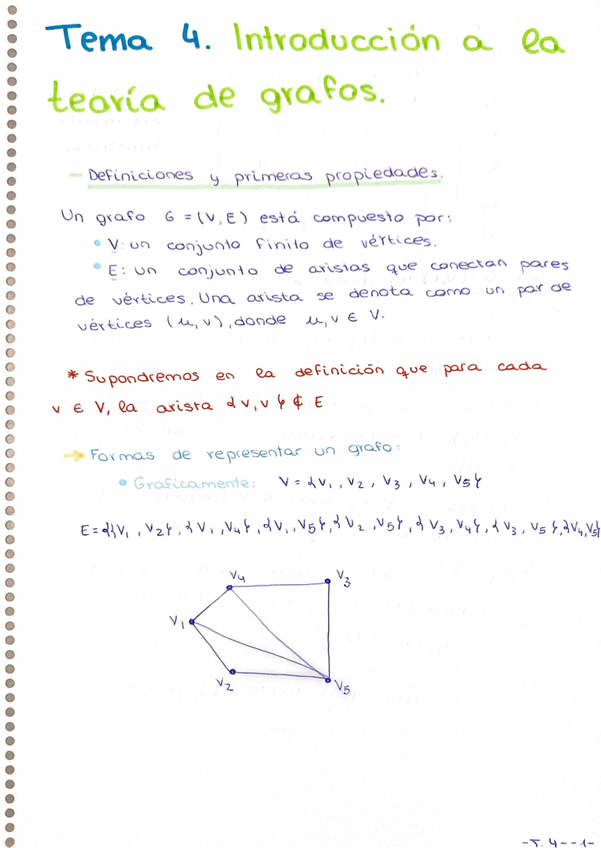 Tema 4. Introducción a la
teoría de grafos.
- Definiciones y primeras propiedades.
Un grafo G = (V, E) está compuesto por:
• V: un conjunto finito de vértices.
• E: un conjunto de aristas que conectan pares
de vértices. Una arista se denota como un par de
vértices (u, v), donde u, v ∈ V.
* Supondremos en la definición que para cada
v ∈ V, la arista {v, v} ∉ E
→ Formas de representar un grafo:
• Graficamente: V = {v₁, v₂, v₃, v₄, v₅}
E = {{v₁, v₂}, {v₁, v₄}, {v₁, v₅}, {v₂, v₅}, {v₃, v₄}, {v₃, v₅}, {v₄, v₅}
v₄
v₃
v₁
v₂
v₅
-T. 4--1-